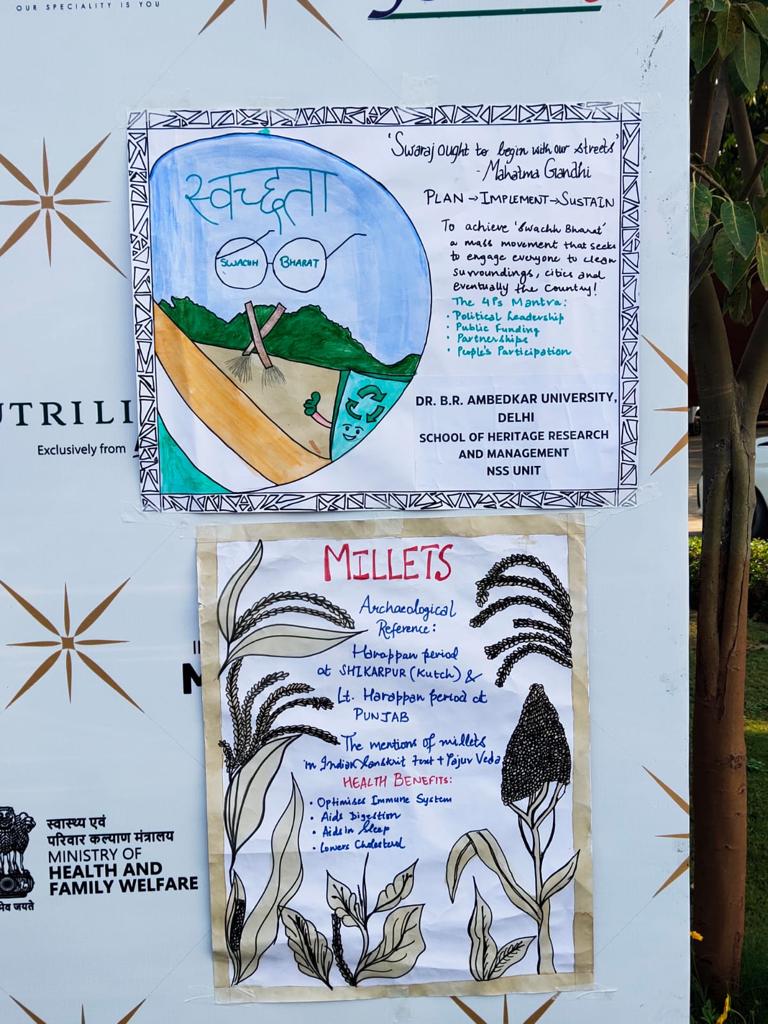 OUR SPECIALITY IS YOU
'Swaraj ought to begin with our streets'
- Mahatma Gandhi
PLAN → IMPLEMENT → SUSTAIN
स्वच्छता
SWACHH BHARAT
To achieve 'Swachh Bharat'
a mass movement that seeks
to engage everyone to clean
surroundings, cities and
eventually the Country!
The 4Ps Mantra:
• Political Leadership
• Public Funding
• Partnerships
• People's Participation
DR. B.R. AMBEDKAR UNIVERSITY,
DELHI
SCHOOL OF HERITAGE RESEARCH
AND MANAGEMENT
NSS UNIT
UTRILI
Exclusively from
MILLETS
Archaeological
Reference:
Harappan period
at SHIKARPUR (Kutch) &
Lt. Harappan period at
PUNJAB
The mentions of millets
in Indian Sanskrit text + Yajur Veda
HEALTH BENEFITS:
• Optimises Immune System
• Aids Digestion
• Aids in Sleep
• Lowers Cholesterol
स्वास्थ्य एवं
परिवार कल्याण मंत्रालय
MINISTRY OF
HEALTH AND
FAMILY WELFARE
मेव जयते